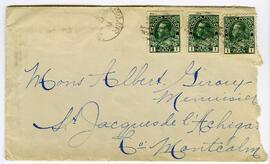 Mons Albert Giroux
Menuisier
St Jacques de l'Achigan
Co Montcalm
1 1 1 1 1 1